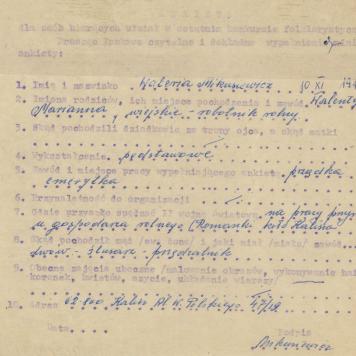 dla osób biorących udział w ostatnim konkursie folklorystycz
Proszę o czytelne i dokładne wypełnienie
ankiety:
1. Imię i nazwisko Waleria Mikusiewicz 10 XI
2. Imiona rodziców, ich miejsce pochodzenia i zawód Walenty
Marianna, wiejskie - robotnik rolny.
3. Skąd pochodzili dziadkowie ze strony ojca, a skąd matki
4. Wykształcenie podstawowe
5. Zawód i miejsce pracy wypełniającego ankietę prządka
emerytka
6. Przynależność do organizacji
7. Gdzie przyszło spędzać II wojnę światową na pracy przym
u gospodarza rolnego koło Kalisza
8. Skąd pochodził mąż /ew. żona/ i jaki miał /miała/ zawód
Lwów - ślusarz - przędzalnik
9. Obecne zajęcia uboczne /malowanie obrazów, wykonywanie haf
koronek, kwiatów, szycie, układanie wierszy/
10. Adres 62-800 Kalisz
Data
Podpis